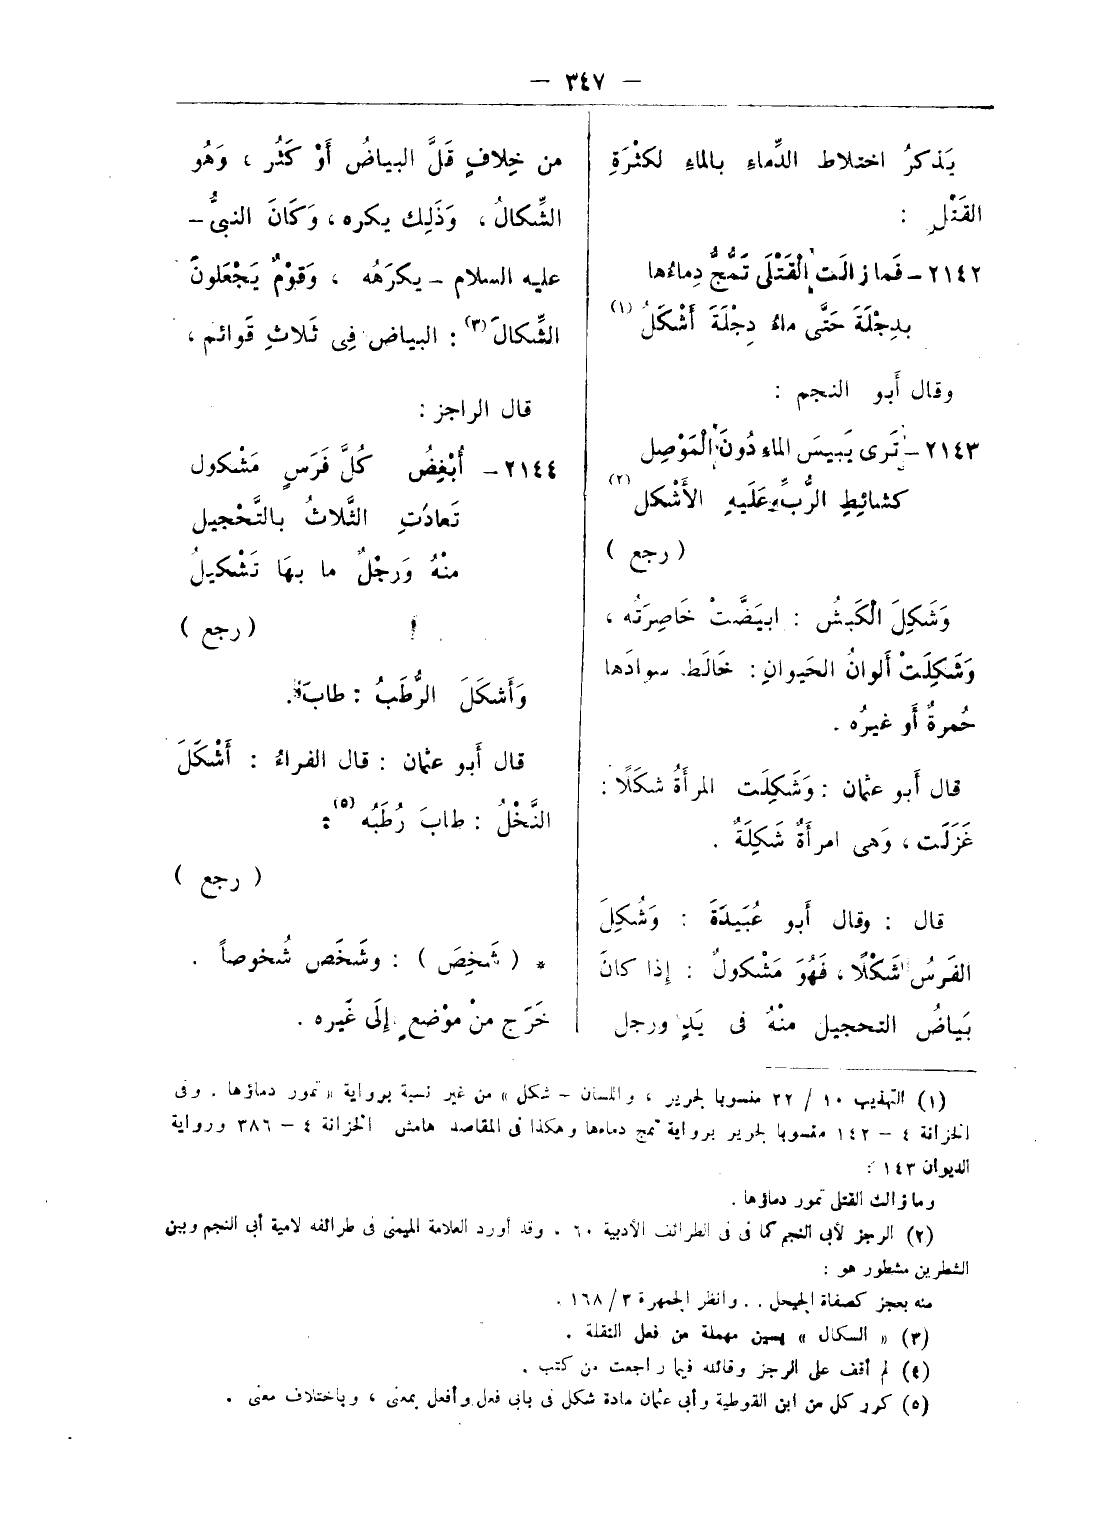 — ٣٤٧ —
يَذكرُ اختلاط الدِّماءِ بالماءِ لكثْرَةِ
القَتْلِ :
٢١٤٢ – فَما زالَت الْقَتْلَى تَمُجُّ دِماءُها
بدِجْلَةَ حَتَّى ماءُ دِجْلَةَ أَشْكَلُ (١)
وقال أَبو النجم :
٢١٤٣ – تَرى يَبيسَ الماءِ دُونَ الْمَوْصِل
كشائِطِ الرُّبِّ عَلَيهِ الأَشْكل (٢)
( رجع )
وَشَكِلَ الْكَبشُ : ابيَضَّتْ خَاصِرَتُه ،
وَشَكِلَتْ أَلوانُ الحَيوانِ : خَالَط سوادَها
حُمرةٌ أَو غيرُه .
قال أَبو عثمان : وَشَكِلَت المرأَةُ شكَلًا :
غَزَلَت ، وَهى امرأَةٌ شَكِلَةٌ .
قال : وقال أَبو عُبَيدَةَ : وَشُكِلَ
الفَرَسُ شَكْلًا ، فَهُوَ مَشْكولٌ : إِذا كانَ
بَياضُ التحجيل منْهُ فى يَدٍ ورجل
من خِلافٍ قَلَّ البياضُ أَوْ كَثُر ، وَهُو
الشِّكالُ ، وَذَلِك يكره ، وَكَانَ النبىُّ –
عليه السلام – يكرَهُه ، وَقوْمٌ يَجْعَلونَ
الشِّكالَ (٣) : البياض فِى ثَلاثِ قَوائم ،
قال الراجز :
٢١٤٤ – أُبْغِضُ كُلَّ فَرَسٍ مَشْكول
تَعادَتِ الثَّلاثُ بالتَّحْجيل
منْهُ وَرجْلٌ ما بهَا تَشْكيلُ
( رجع )
وَأَشكَلَ الرُّطَبُ : طابَ .
قال أَبو عثمان : قال الفراءُ : أَشْكَلَ
النَّخْلُ : طابَ رُطَبُه (٥) :
( رجع )
* ( شَخِصَ ) : وشَخَص شُخوصاً .
خَرَج منْ موْضعٍ إِلَى غَيره .
(١) التهذيب ١٠ / ٢٢ منسوبا لجرير ، واللسان – شكل » من غير نسبة برواية « تمور دماؤها . وفى
الخزانة ٤ – ١٤٢ منسوبا لجرير برواية تمج دماءها وهكذا فى المقاصد هامش الخزانة ٤ – ٣٨٦ ورواية
الديوان ١٤٣ :
وما زالت القتلى تمور دماؤها .
(٢) الرجز لأبى النجم كما فى فى الطرائف الأدبية ٦٠ . وقد أورد العلامة الميمنى فى طرائفه لامية أبى النجم وبين
الشطرين مشطور هو :
منه بعجز كصفاة الجيحل . . وانظر الجمهرة ٣ / ١٦٨ .
(٣) « السكال » بسين مهملة من فعل النقلة .
(٤) لم أقف على الرجز وقائله فيما راجعت من كتب .
(٥) كرر كل من ابن القوطية وأبى عثمان مادة شكل فى بابى فعل وأفعل بمعنى ، وباختلاف معنى .